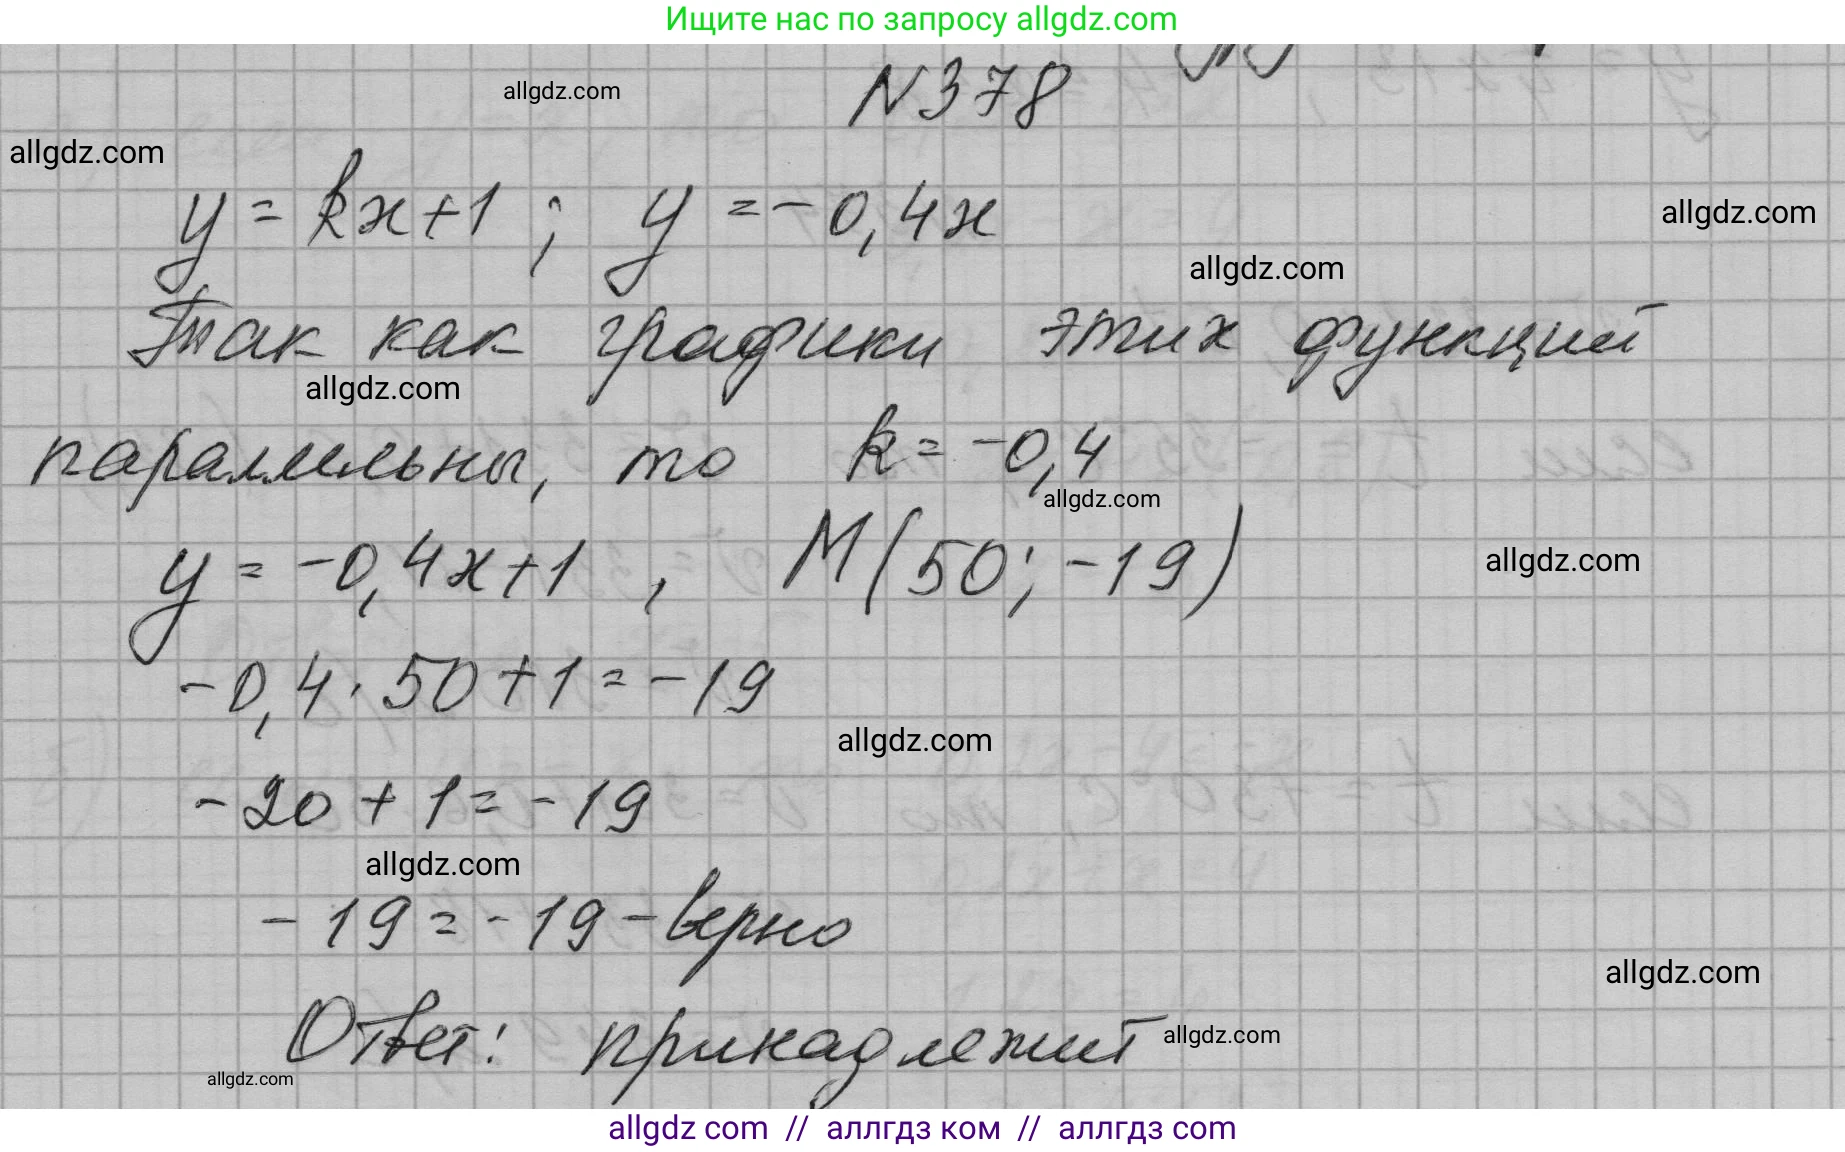 Ищите нас по запросу allgdz.com
N378
allgdz.com
allgdz.com
y = kx+1 ; y = -0,4x
allgdz.com
allgdz.com
Так как графики этих функций
allgdz.com
параллельны, то k = -0,4
allgdz.com
y = -0,4x+1 , M(50; -19)
allgdz.com
-0,4 · 50 + 1 = -19
allgdz.com
-20 + 1 = -19
allgdz.com
-19 = -19 - верно
allgdz.com
Ответ: принадлежит
allgdz.com
allgdz.com
allgdz com // аллгдз ком // аллгдз com